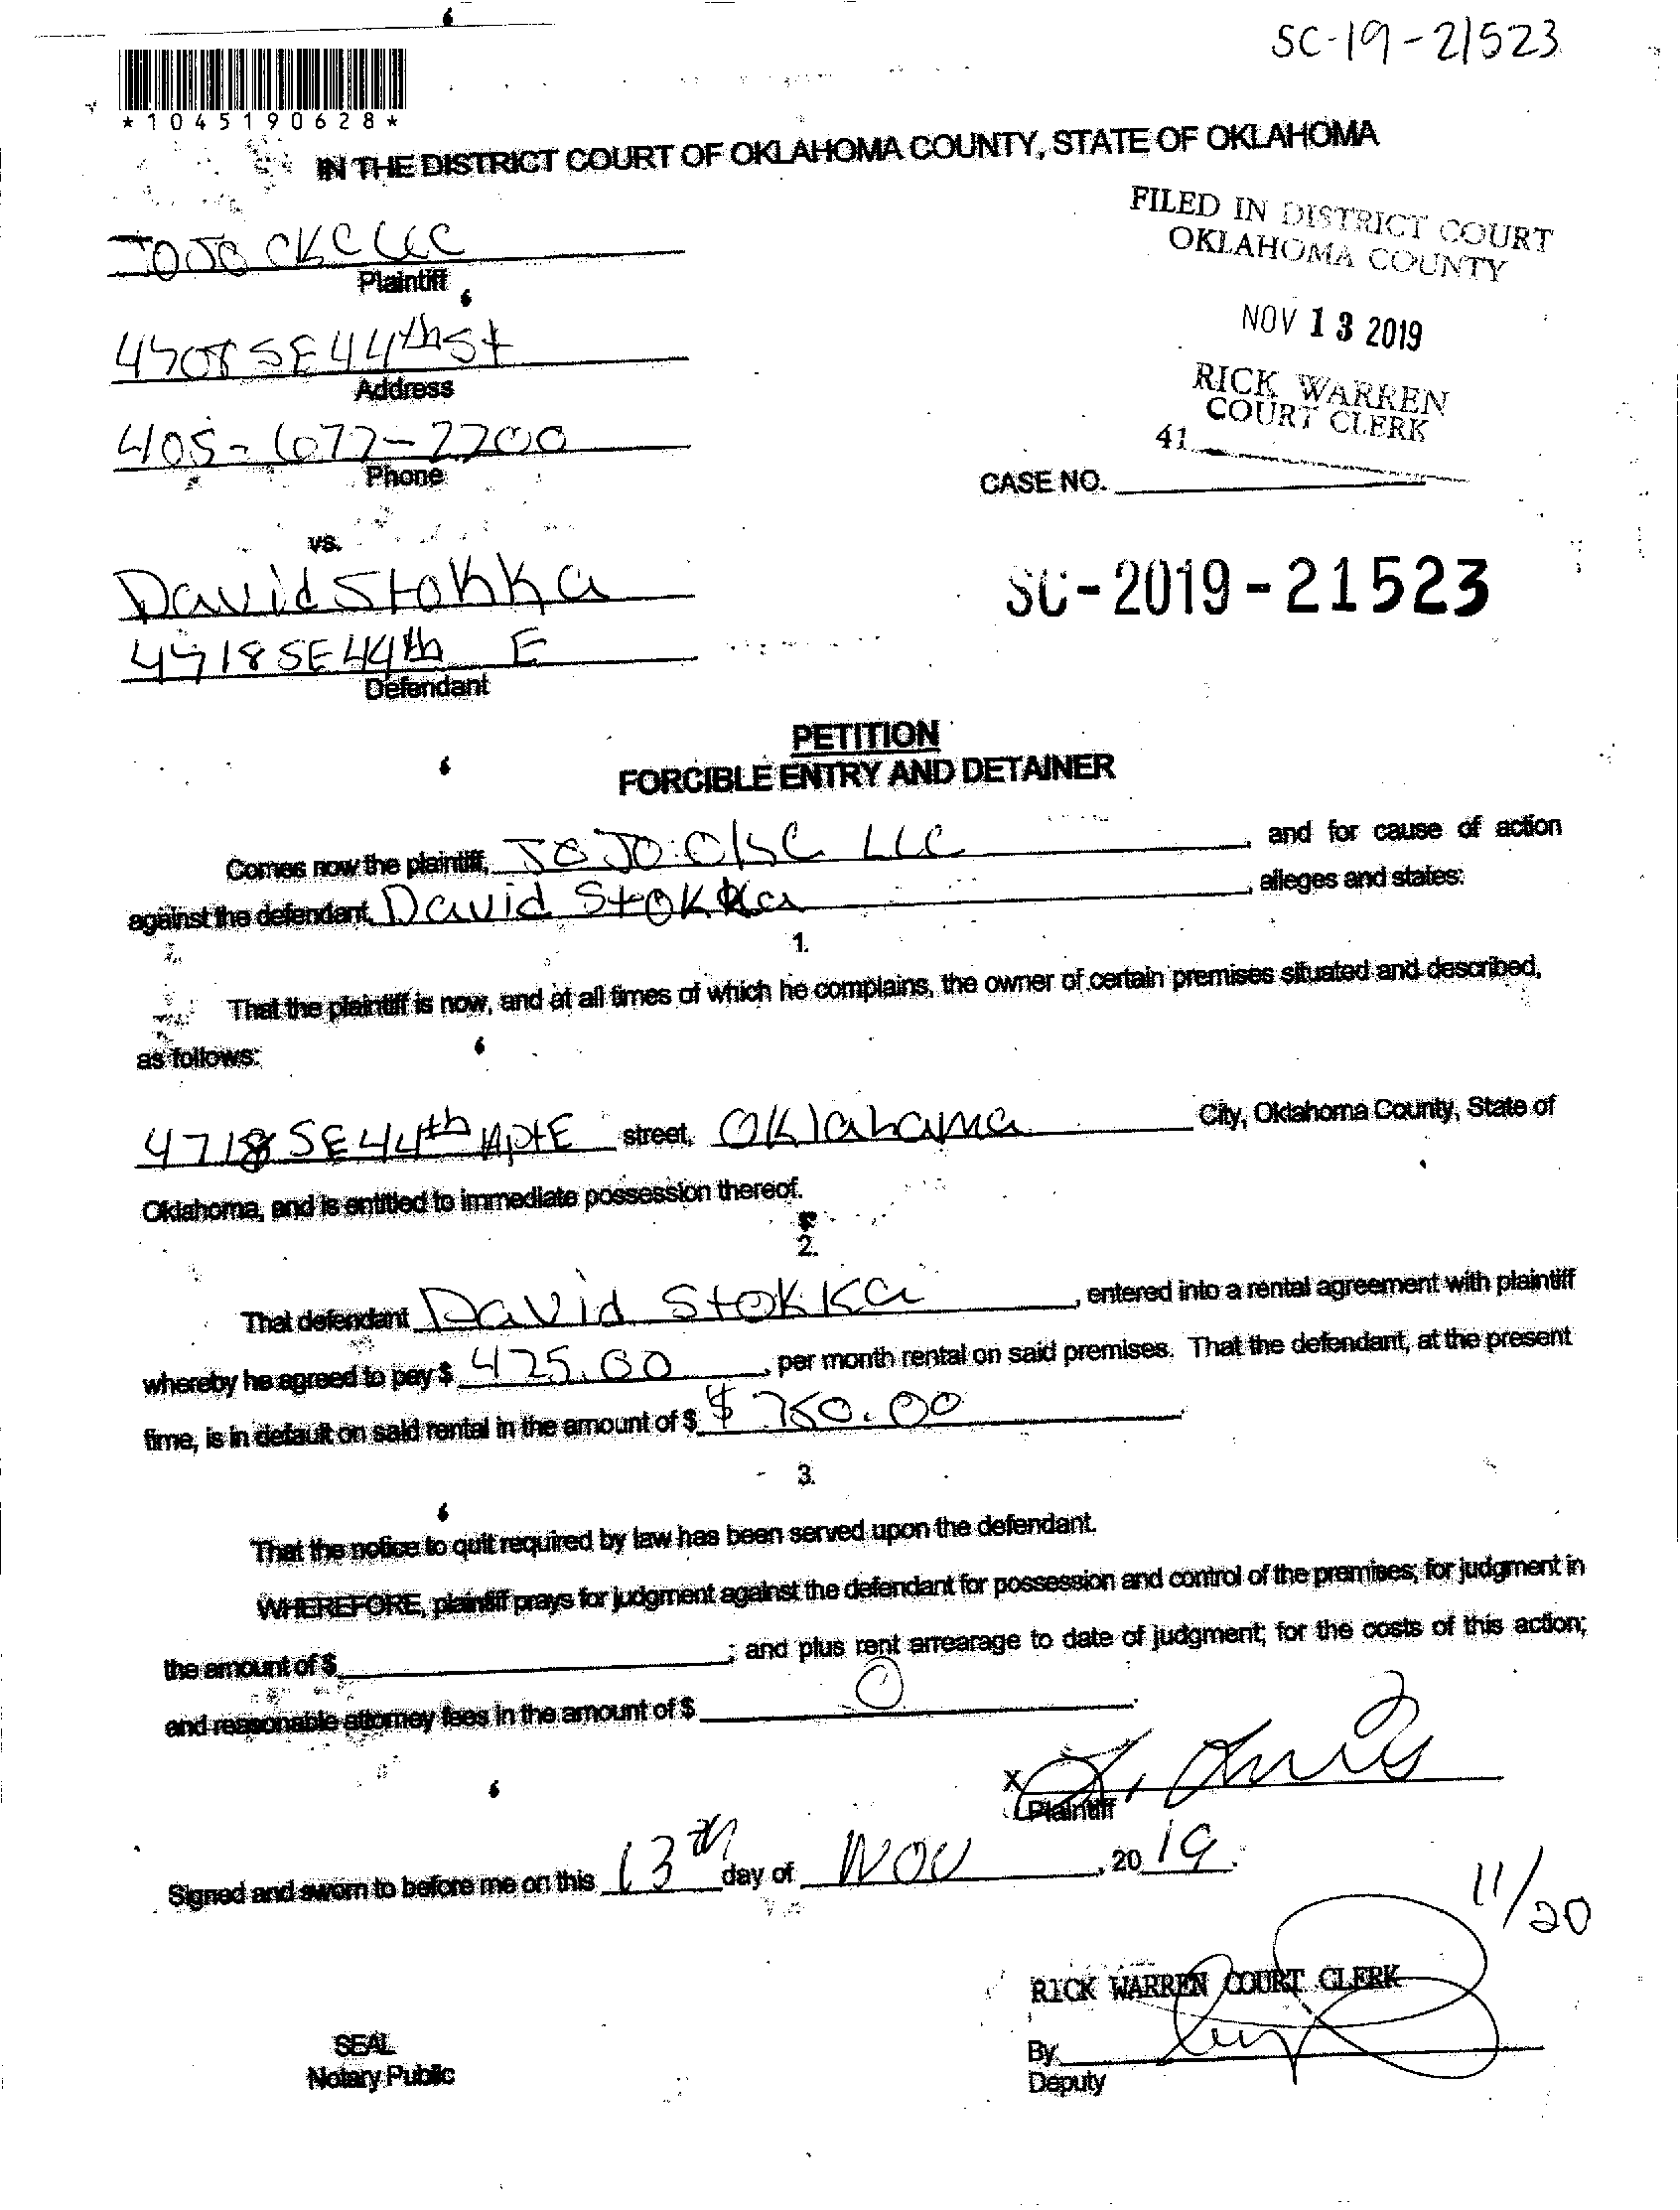 SC-19-21523
*1045190628*
IN THE DISTRICT COURT OF OKLAHOMA COUNTY, STATE OF OKLAHOMA
FILED IN DISTRICT COURT
OKLAHOMA COUNTY
JOJO OKC LLC
Plaintiff
NOV 13 2019
4708 SE 44th St
Address
RICK WARREN
COURT CLERK
41
405-677-2200
Phone
CASE NO.
vs.
David Stokka
SC-2019-21523
4718 SE 44th E
Defendant
PETITION
FORCIBLE ENTRY AND DETAINER
Comes now the plaintiff, JOJO OKC LLC, and for cause of action
against the defendant, David Stokka, alleges and states:
1.
That the plaintiff is now, and at all times of which he complains, the owner of certain premises situated and described,
as follows:
4718 SE 44th Apt E street, Oklahoma City, Oklahoma County, State of
Oklahoma, and is entitled to immediate possession thereof.
2.
That defendant David Stokka, entered into a rental agreement with plaintiff
whereby he agreed to pay $ 425.00, per month rental on said premises. That the defendant, at the present
time, is in default on said rental in the amount of $ $ 750.00.
3.
That the notice to quit required by law has been served upon the defendant.
WHEREFORE, plaintiff prays for judgment against the defendant for possession and control of the premises; for judgment in
the amount of $; and plus rent arrearage to date of judgment; for the costs of this action;
and reasonable attorney fees in the amount of $ 0.
X
Plaintiff
Signed and sworn to before me on this 13th day of NOV, 2019.
11/20
RICK WARREN COURT CLERK
SEAL
By
Notary Public
Deputy